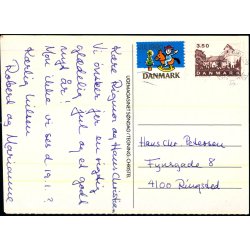 Kære Rigmor og Hans Christian.
Vi ønsker jer en rigtig
glædelig jul og et godt
nytår!
Mon ikke vi ses d 19.1.?
Kærlig hilsen
Robert og Marianne
DANMARK
3.50
DANMARK
Hans Chr Petersen
Fynsgade 8
4100 Ringsted